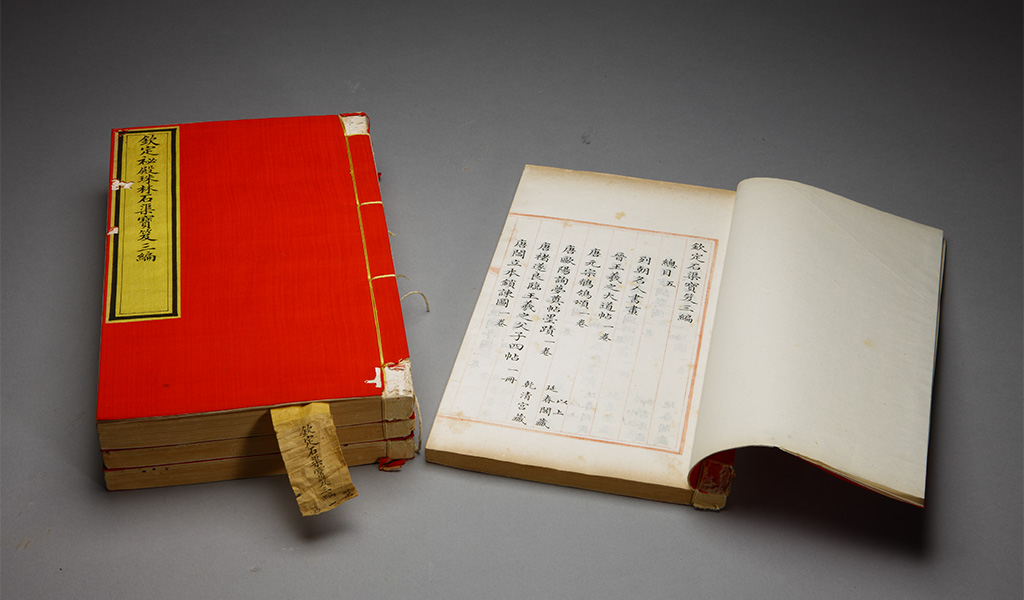 欽定秘殿珠林石渠寶笈三編
欽定石渠寶笈三
欽定石渠寶笈三編
總目五
列朝名人書畫
晉王羲之大道帖一卷
唐元宗鶺鴒頌一卷
唐歐陽詢夢奠帖墨蹟一卷
以上
延春閣藏
唐褚遂良臨王羲之父子四帖一冊
乾清宮藏
唐閻立本鎖諫圖一卷